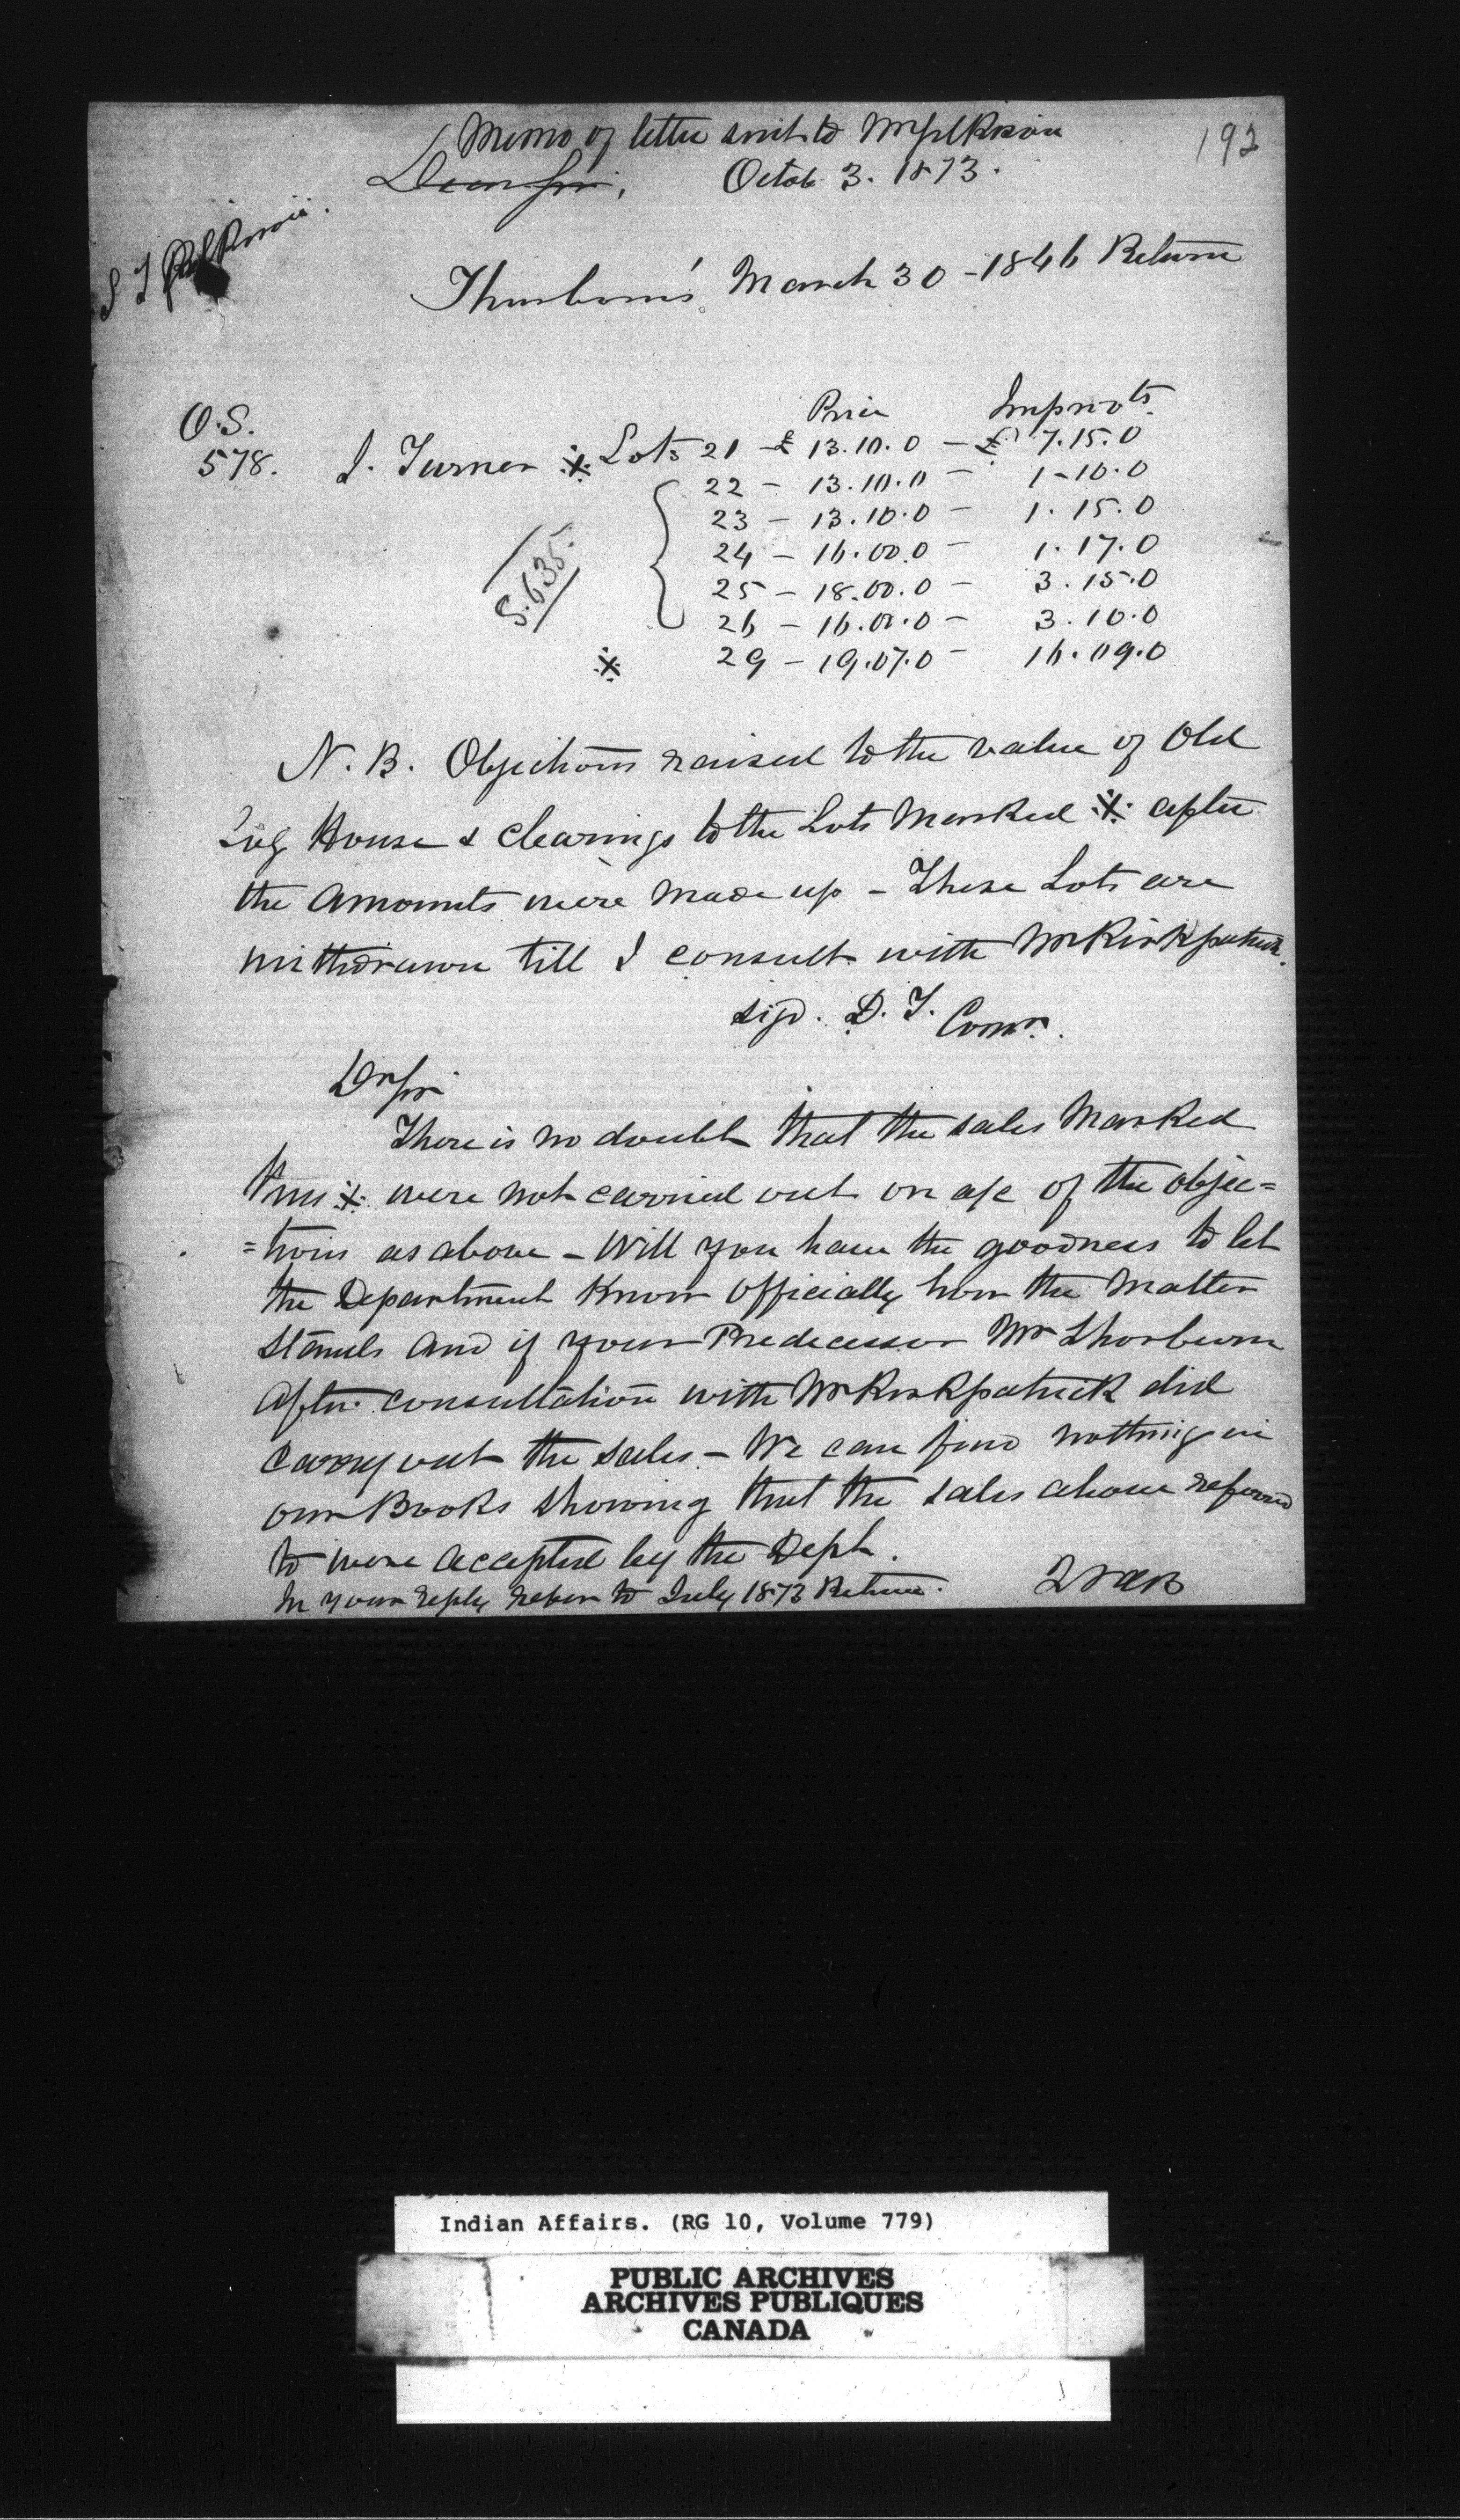 Memo of letter sent to Mr Gilkison
192
Dear Sir,
Octob 3. 1873.
J T Gilkison
Thorburn's March 30 - 1846 Return
Price Improvts.
O.S.
578. J. Turner ※ Lots 21 - £ 13.10.0 - £ 7.15.0
22 - 13.10.0 - 1-10.0
23 - 13.10.0 - 1.15.0
24 - 16.00.0 - 1.17.0
25 - 18.00.0 - 3.15.0
26 - 16.00.0 - 3.10.0
※ 29 - 19.07.0 - 16.09.0
S.635.
N.B. Objections raised to the value of Old
Log House & clearings to the Lots Marked ※ after
the amounts were made up - These Lots are
withdrawn till I consult with Mr Kirkpatrick.
sigd. D.T. Comr.
Dr Sir
There is no doubt that the sales Marked
thus ※ were not carried out on a/c of the objec=
=tions as above - Will you have the goodness to let
the Department Know Officially how the Matter
stands and if your Predecessor Mr Thorburn
after consultation with Mr Kirkpatrick did
carry out the sales - We can find nothing in
our Books showing that the sales above referred
to were accepted by the Dept.
In your reply refer to July 1873 Return.
Indian Affairs. (RG 10, Volume 779)
PUBLIC ARCHIVES
ARCHIVES PUBLIQUES
CANADA